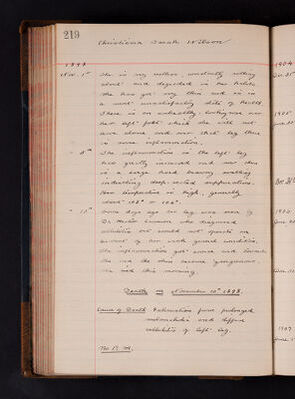 219
Christiana Sarah Wilson
1898
Nov. 1st She is very restless, constantly rolling
about and degraded in her habits.
She has got very thin and is in
a most unsatisfactory state of health.
There is an unhealthy looking sore on
her left foot which she will not
leave alone and over that leg there
is some inflammation.
" 5th The inflammation in the left leg
has greatly increased and now there
is a large hard brawny swelling
indicating deep-seated suppuration.
Her temperature is high, generally
about 103° or 104°.
" 10th Some days ago her leg was seen by
Dr. who diagnosed
cellulitis but would not operate on
account of her weak general condition.
The inflammation got worse and
the and the skin became gangrenous.
She died this morning.
Death on November 10th 1898.
Cause of Death Exhaustion from prolonged
melancholia and diffuse
cellulitis of left leg.
1904
1905
1907